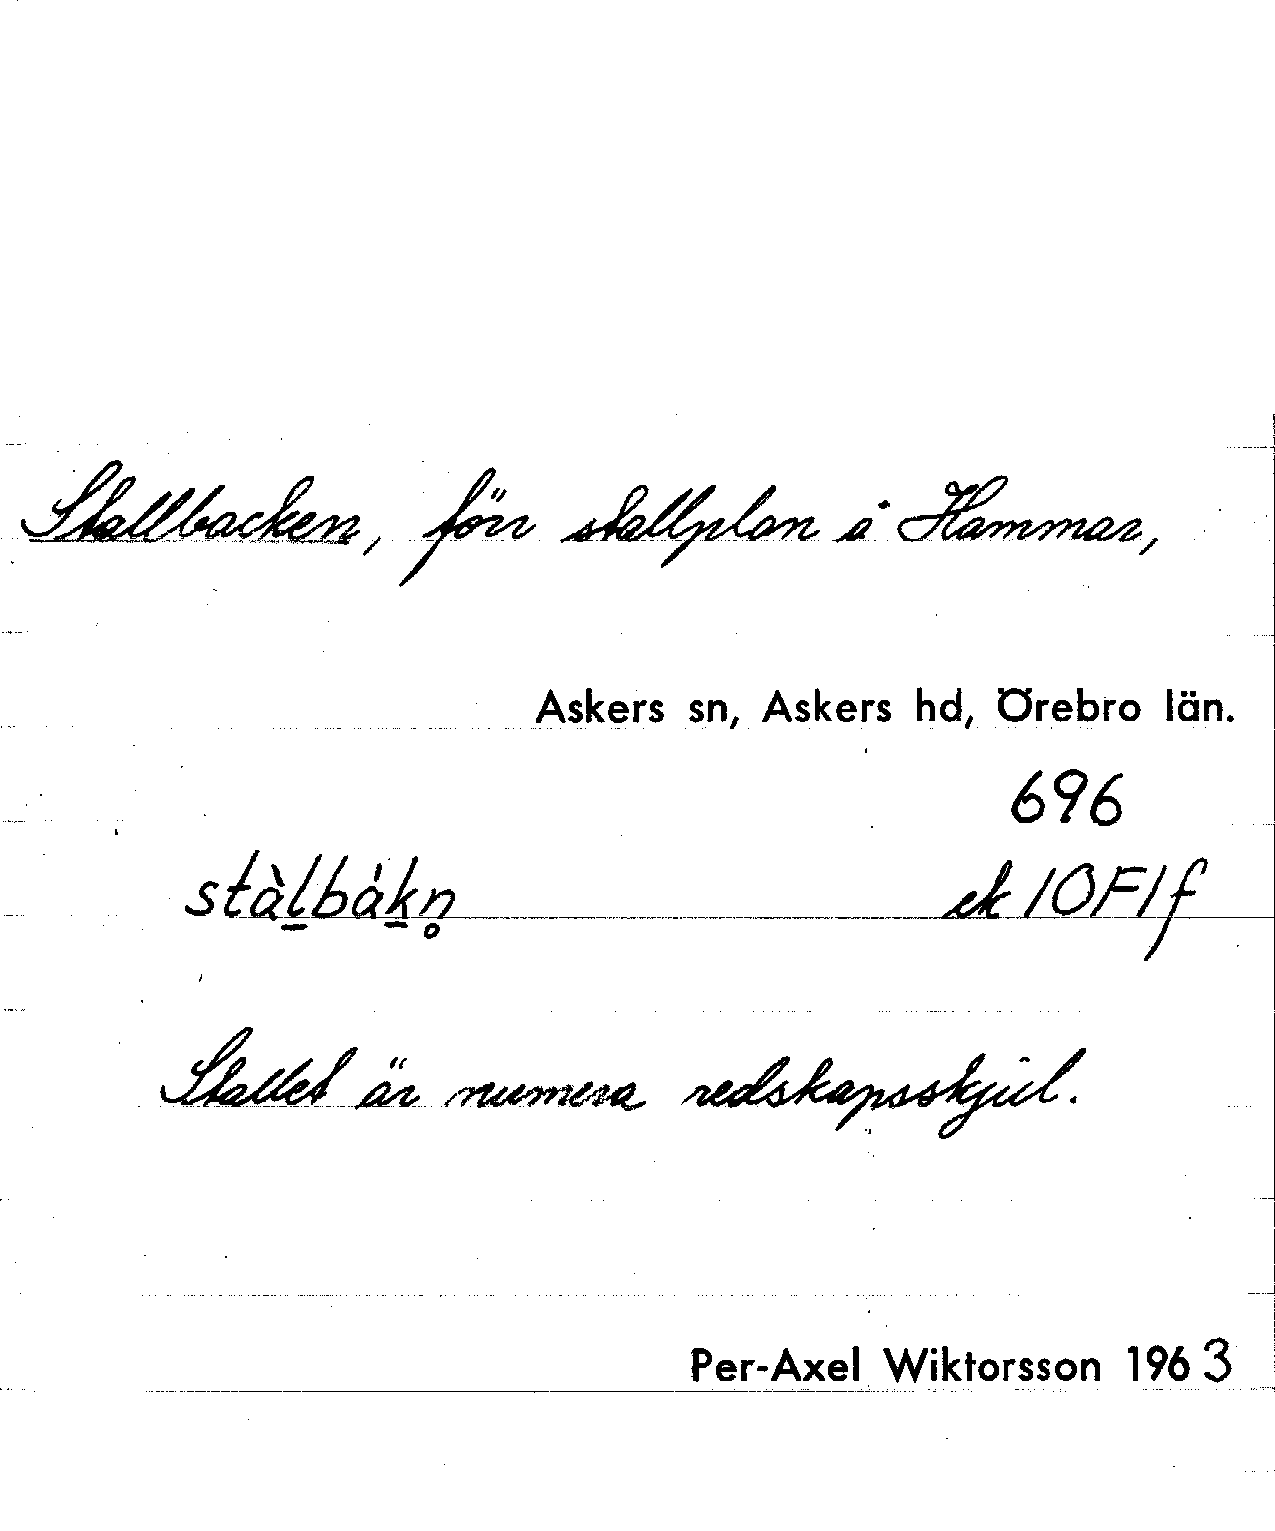 Stallbacken, förr stallplan å Hammar,
Askers sn, Askers hd, Örebro län.
696
stàl̲bák̲n̥ ek 10F1f
Stallet är numera redskapsskjul.
Per-Axel Wiktorsson 1963